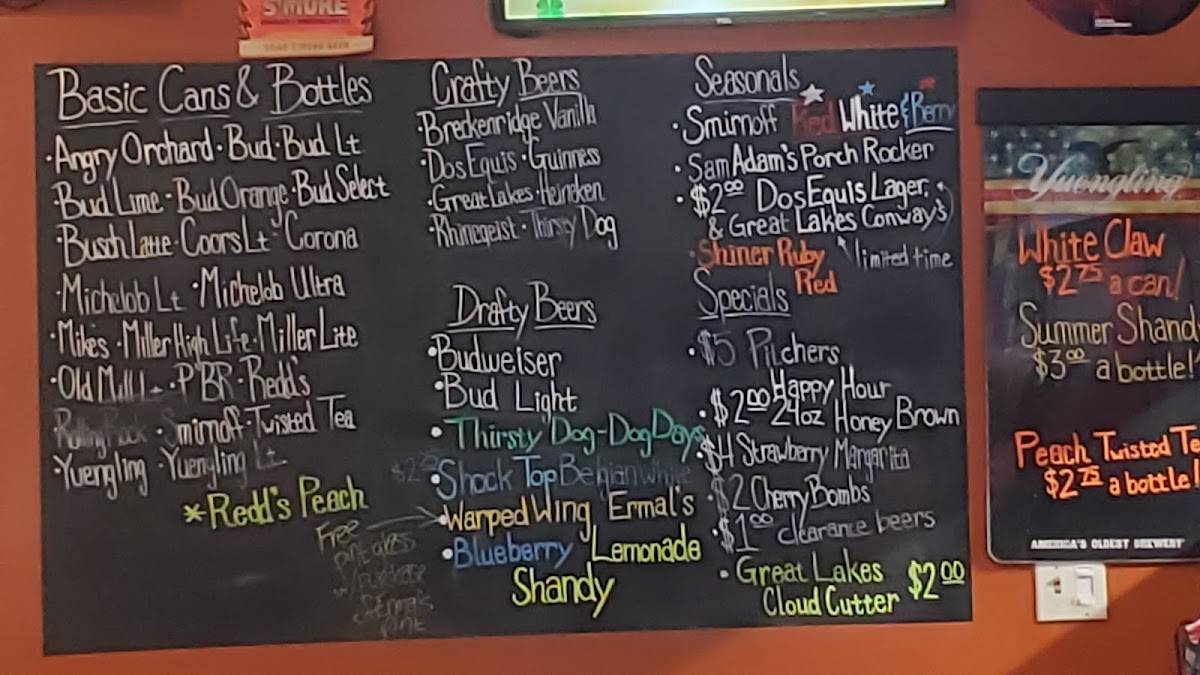 S'MORE
Basic Cans & Bottles
·Angry Orchard·Bud·Bud Lt
·Bud Lime·Bud Orange·Bud Select
·Busch Latte·Coors Lt·Corona
·Michelob Lt·Michelob Ultra
·Mikes·Miller High Life·Miller Lite
·Old Mill Lt·PBR·Redd's
Rolling Rock·Smirnoff·Twisted Tea
·Yuengling·Yuengling Lt
*Redd's Peach
Crafty Beers
·Breckenridge Vanilla
·Dos Equis·Guinness
·Great Lakes·Heineken
·Rhinegeist·Thirsty Dog
Drafty Beers
·Budweiser
·Bud Light
·Thirsty Dog-Dog Days
·Shock Top Belgian White
·Warped Wing Ermal's
·Blueberry Lemonade
Shandy
Free
pint glass
w/purchase
Ermal's
pint
Seasonals
·Smirnoff Red White & Berry
·Sam Adam's Porch Rocker
·$2.00 Dos Equis Lager,
& Great Lakes Conway's
·Shiner Ruby
Red
limited time
Specials
·$5 Pitchers
Happy Hour
·$2.00 24oz Honey Brown
·$4 Strawberry Margarita
·$2 Cherry Bombs
·$1.00 clearance beers
·Great Lakes
Cloud Cutter $2.00
Yuengling
White Claw
$2.75 a can!
Summer Shand
$3.00 a bottle!
Peach Twisted Te
$2.75 a bottle!
AMERICA'S OLDEST BREWERY